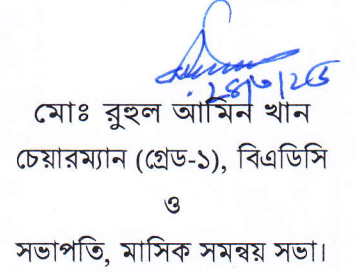 মোঃ রুহুল আমিন খান
চেয়ারম্যান (গ্রেড-১), বিএডিসি
ও
সভাপতি, মাসিক সমন্বয় সভা।